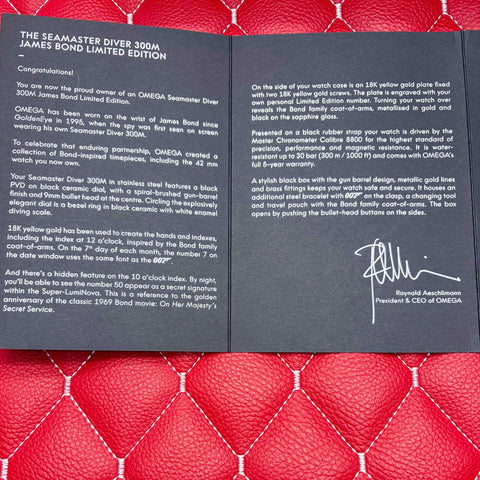 THE SEAMASTER DIVER 300M
JAMES BOND LIMITED EDITION
–
Congratulations!
You are now the proud owner of an OMEGA Seamaster Diver
300M James Bond Limited Edition.
OMEGA has been won on the wrist of James Bond since
GoldenEye in 1995, when the spy was first seen on screen
wearing his own Seamaster Diver 300M.
To celebrate that enduring partnership, OMEGA created a
collection of Bond-inspired timepieces, including the 42 mm
watch you now own.
Your Seamaster Diver 300M in stainless steel features a black
PVD on black ceramic dial, with a spiral-brushed gun-barrel
finish and 9mm bullet head at the centre. Circling the explosively
elegant dial is a bezel ring in black ceramic with white enamel
diving scale.
18K yellow gold has been used to create the hands and indexes,
including the index at 12 o'clock, inspired by the Bond family
coat-of-arms. On the 7th day of each month, the number 7 on
the date window uses same font as the 007.
And there's a hidden feature on the 10 o'clock index. By night,
you'll be able to see the number 50 appear as a secret signature
within the Super-LumiNova. This is a reference to the golden
anniversary of the classic 1969 Bond movie: On Her Majesty's
Secret Service.
On the side of your watch case is an 18K yellow gold plate fixed
with two 18K yellow gold screws. The plate is engraved with your
own personal Limited Edition number. Turning your watch over
reveals the Bond family coat-of-arms, metallised in gold and
black on the sapphire glass.
Presented on a black rubber strap your watch is driven by the
Master Chronometer Calibre 8800 for the highest standard of
precision, performance and magnetic resistance. It is water-
resistant up to 30 bar (300 m / 1000 ft) and comes with OMEGA's
full 5-year warranty.
A stylish black box with the gun barrel design, metallic gold lines
and brass fittings keeps your watch safe and secure. It houses an
additional steel bracelet with 007 on the clasp, a changing tool
and travel pouch with the Bond family coat-of-arms. The box
opens by pushing the bullet-head buttons on the sides.
Raynald Aeschlimann
President & CEO of OMEGA